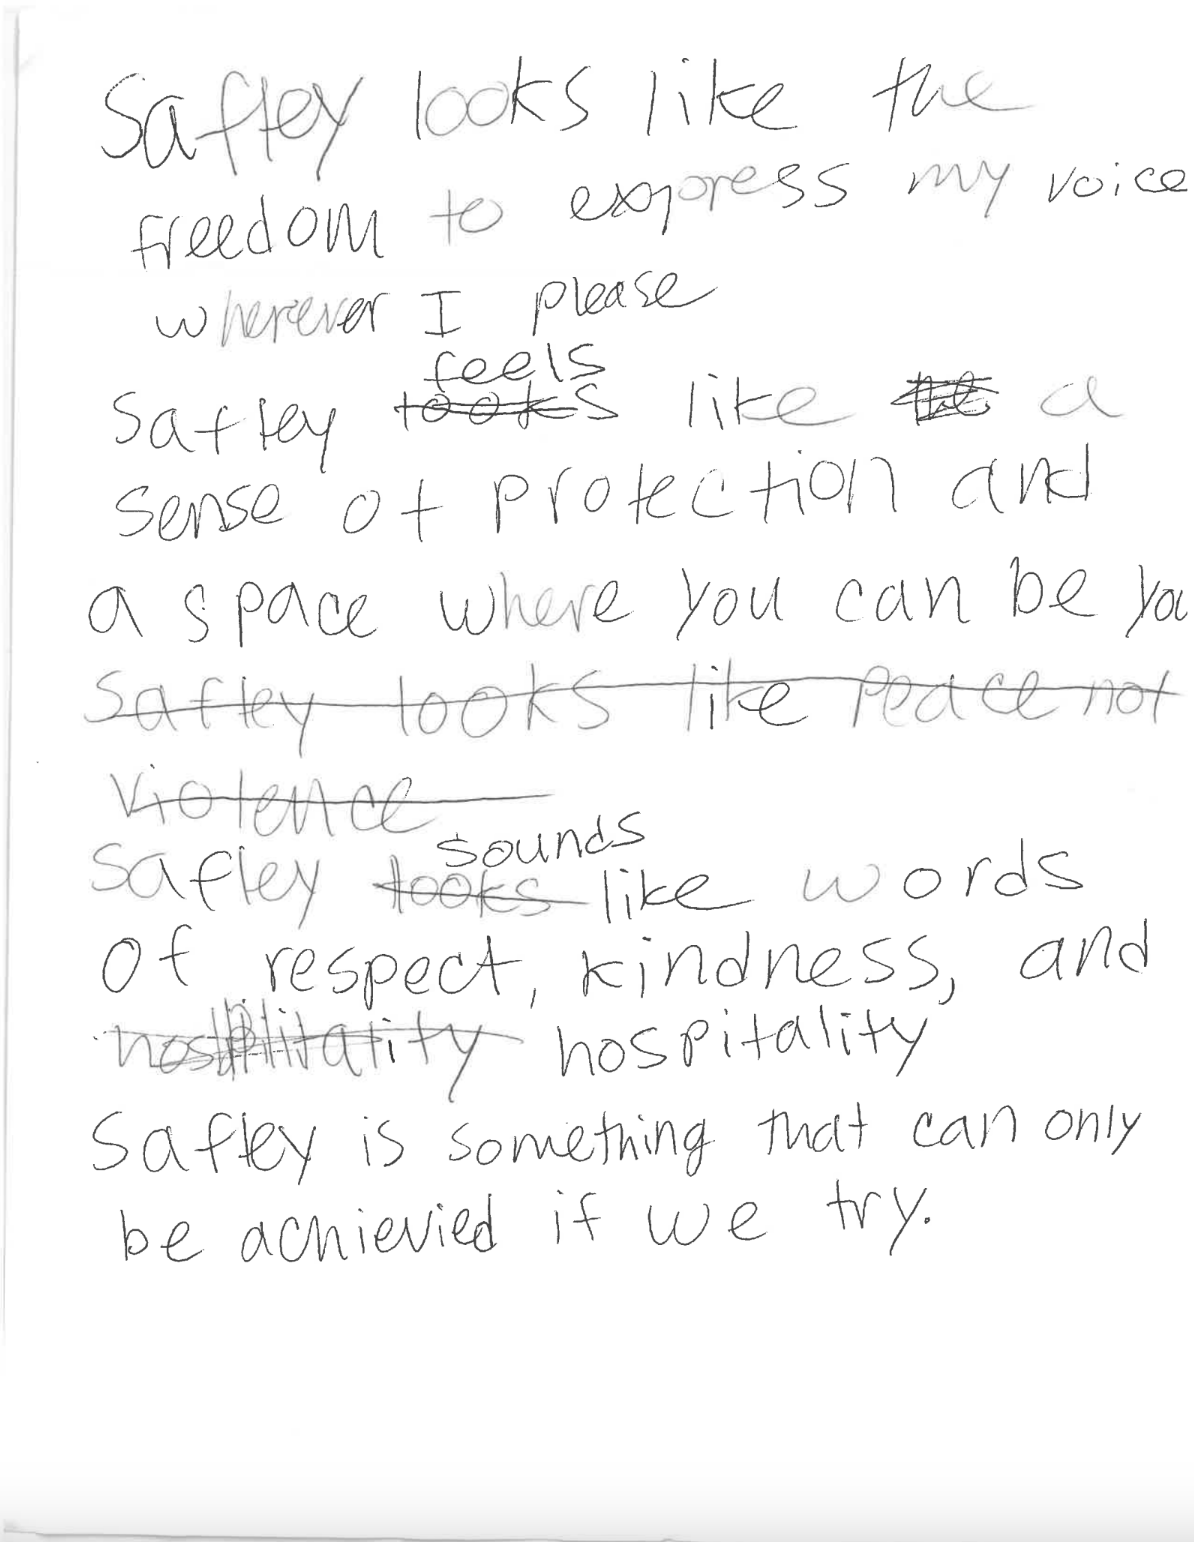 Saftey looks like the
freedom to express my voice
wherever I please
feels
Saftey looks like the a
sense of protection and
a space where you can be you
Saftey looks like peace not
violence
sounds
Saftey looks like words
of respect, kindness, and
hospitality
Saftey is something that can only
be achievied if we try.